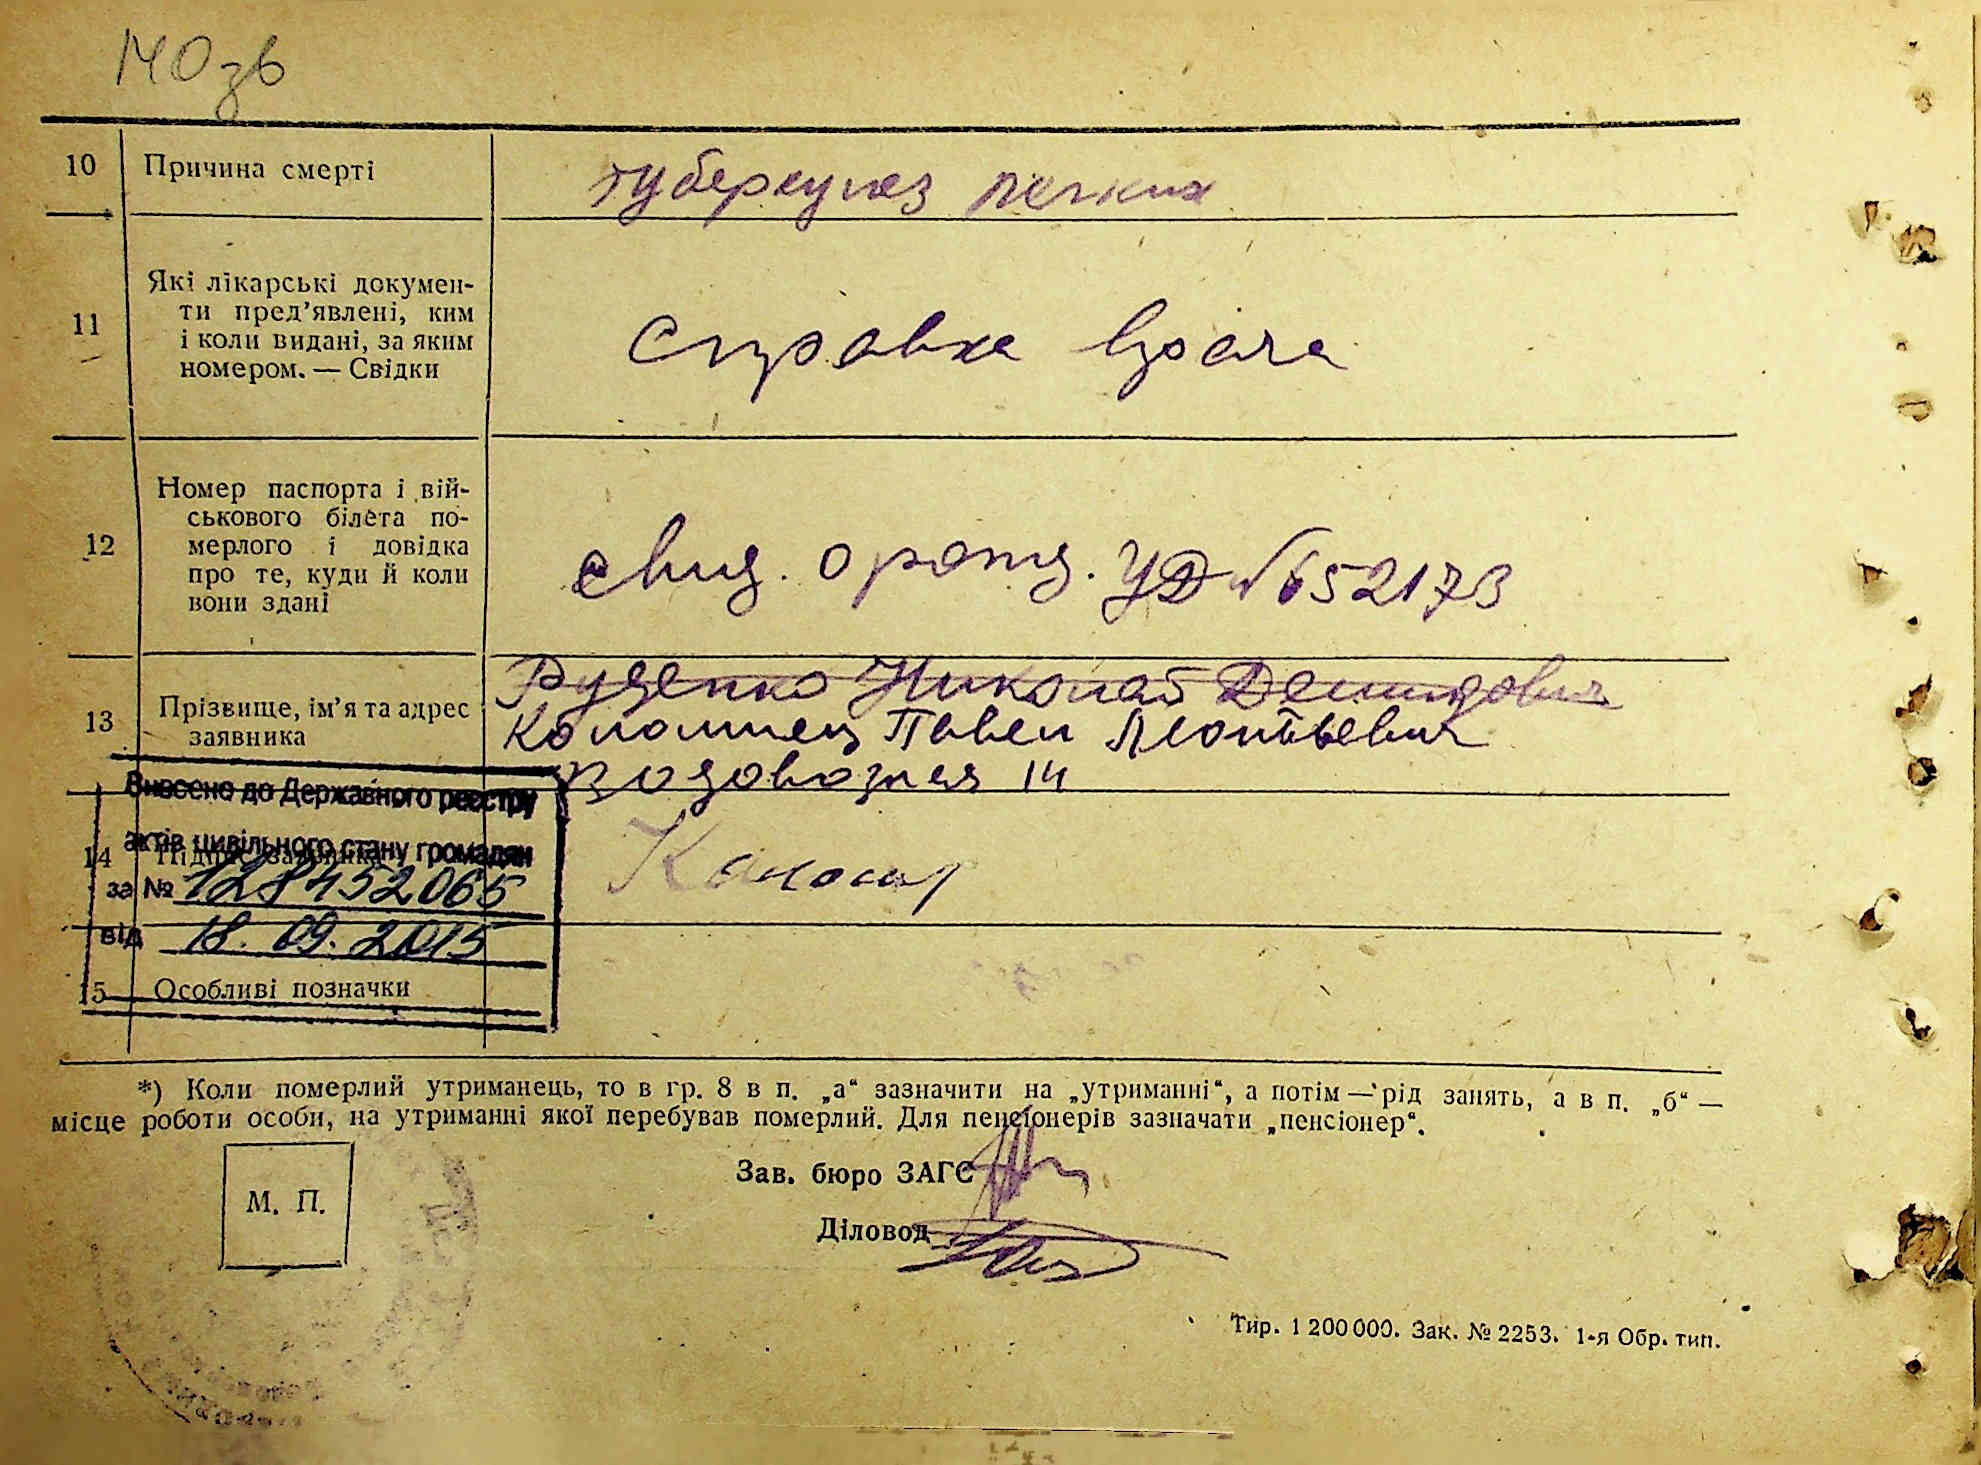 140 зв
10 Причина смерті
туберкулез легких
11 Які лікарські докумен-
ти пред'явлені, ким
і коли видані, за яким
номером. — Свідки
справка врача
12 Номер паспорта і вій-
ськового білета по-
мерлого і довідка
про те, куди й коли
вони здані
свид. о рожд. УД №652173
13 Прізвище, ім'я та адрес
заявника
Руденко Николай Демидович
Коломиец Павел Леонтьевич
Водовозная 14
Внесено до Державного реєстру
актів цивільного стану громадян
14 Підпис заявника
за № 128452065
від 18.09.2015
15 Особливі позначки
*) Коли померлий утриманець, то в гр. 8 в п. „а“ зазначити на „утриманні“, а потім — рід занять, а в п. „б“ —
місце роботи особи, на утриманні якої перебував померлий. Для пенсіонерів зазначати „пенсіонер“.
М. П.
Зав. бюро ЗАГС
Діловод
Тир. 1 200 000. Зак. № 2253. 1-я Обр. тип.